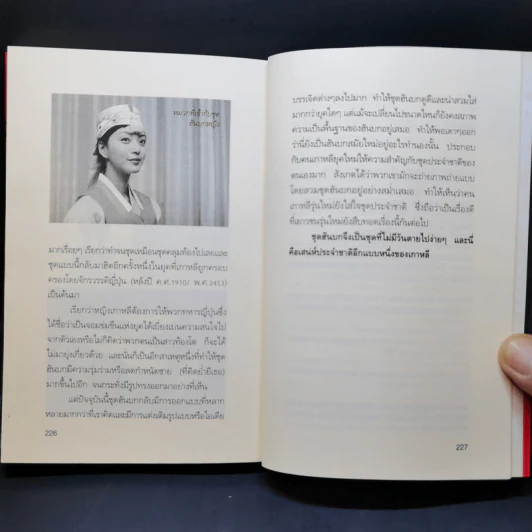 หมวกที่เข้ากับชุด
ฮันบกหญิง
มากเรื่อยๆ เรียกว่าทำจนชุดเหมือนชุดคลุมท้องไปเลยและชุด
ชุดแบบนี้กลับมาฮิตอีกครั้งหนึ่งในยุคที่เกาหลีถูกครอบ
ครองโดยจักรวรรดิญี่ปุ่น (หลังปี ค.ศ.1910/ พ.ศ.2453)
เป็นต้นมา
เรียกว่าหญิงเกาหลีต้องการให้พวกทหารญี่ปุ่นซึ่ง
ได้ชื่อว่าเป็นจอมข่มขืนแห่งยุคได้เบี่ยงเบนความสนใจไป
จากตัวเองหรือไม่ก็คิดว่าพวกตนเป็นสาวท้องโต ก็จะได้
ไม่มายุ่งเกี่ยวด้วย และนั่นก็เป็นอีกสาเหตุหนึ่งที่ทำให้ชุด
ฮันบกมีความรุ่มร่ามหรือลดกำหนัดชาย (ที่คิดย่ำยีเธอ)
มากขึ้นไปอีก จนกระทั่งมีรูปทรงออกมาอย่างที่เห็น
แต่ปัจจุบันนี้ชุดฮันบกกลับมีการออกแบบที่หลาก
หลายมากกว่าที่เราคิดและมีการแต่งเติมรูปแบบหรือไอเดีย
226
บรรเจิดต่างๆลงไปมาก ทำให้ชุดฮันบกดูดีและน่าสวมใส่
มากกว่ายุคใดๆ แต่แม้จะเปลี่ยนไปขนาดไหนก็ยังคงสภาพ
ความเป็นพื้นฐานของฮันบกอยู่เสมอ ทำให้พอเดาๆออก
ว่านี่ยังเป็นฮันบกสมัยใหม่อยู่อะไรทำนองนั้น ประกอบ
กับคนเกาหลียุคใหม่ให้ความสำคัญกับชุดประจำชาติของ
ตนเองมาก สังเกตได้ว่าพวกเขามักจะถ่ายภาพถ่ายแบบ
โดยสวมชุดฮันบกอยู่อย่างสม่ำเสมอ ทำให้เห็นว่าคน
เกาหลีรุ่นใหม่ยังใส่ใจชุดประจำชาติ ซึ่งถือว่าเป็นเรื่องดี
ที่เยาวชนรุ่นใหม่ยังสืบทอดเรื่องนี้กันต่อไป
ชุดฮันบกจึงเป็นชุดที่ไม่มีวันตายไปง่ายๆ และนี่
คือเสน่ห์ประจำชาติอีกแบบหนึ่งของเกาหลี
227